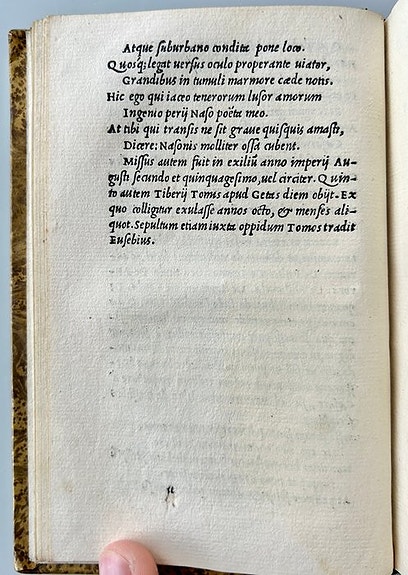 Atque suburbano condita pone loco.
Quosq; legat versus oculo properante uiator,
Grandibus in tumuli marmore cæde notis.
Hic ego qui iaceo tenerorum lusor amorum
Ingenio perij Naso poëta meo.
At tibi qui transis ne sit graue quisquis amasti,
Dicere: Nasonis molliter ossa cubent.
Missus autem fuit in exiliũ anno imperij Au-
gusti secundo et quinquagesimo, uel circiter. Quin-
to autem Tiberij Tomus apud Getas diem obijt. Ex
quo colligitur exulasse annos octo, & menses ali-
quot. Sepultum etiam iuxta oppidum Tomos tradit
Eusebius.